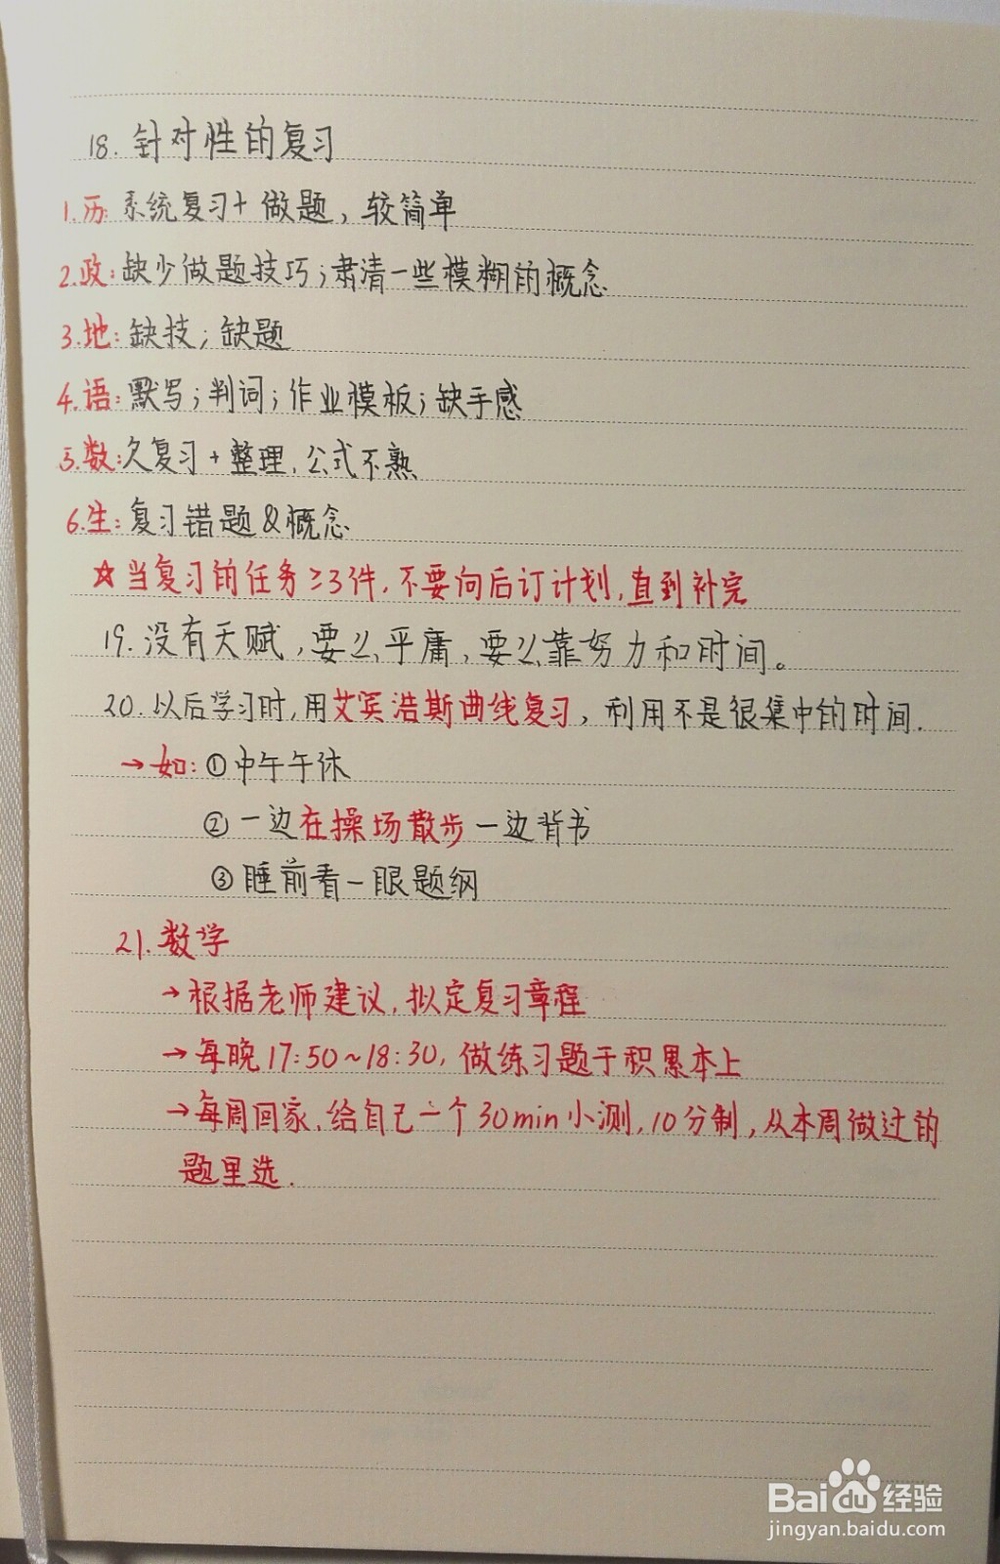 18. 针对性的复习
1.历: 系统复习+ 做题, 较简单
2.政: 缺少做题技巧; 肃清一些模糊的概念
3.地: 缺技; 缺题
4.语: 默写; 判词; 作业模板; 缺手感
5.数: 欠复习 + 整理, 公式不熟
6.生: 复习错题&概念
☆当复习的任务≥3件, 不要向后订计划, 直到补完
19. 没有天赋, 要么平庸, 要么靠努力和时间。
20. 以后学习时, 用艾宾浩斯曲线复习, 利用不是很集中的时间.
→如: ①中午午休
②一边在操场散步一边背书
③睡前看一眼题纲
21. 数学
→根据老师建议, 拟定复习章程
→每晚17:50~18:30, 做练习题于积累本上
→每周回家, 给自己一个30min小测, 10分制, 从本周做过的
题里选.
Baidu经验
jingyan.baidu.com